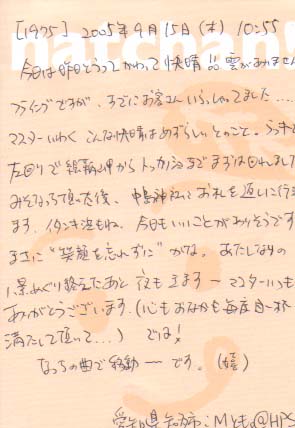 [1975] 2005年9月15日(木) 10:55
hatchan!
今日は昨日とうってかわって快晴 雲がありません
フライングですが、すでにお客さんいらしてました....
マスターいわく こんな快晴はめずらしい とのこと。
左回りで 岬から トッカリショまで まずは回れました
みそ 頂いた後、中島神社に お札を返しに行き
ます。イタンキ浜もね、今日もいいことがありそうです
まさに "笑顔を忘れずに" かな。あたしなりの
八景めぐり終えたあと 夜も来ます ー マスターいつも
ありがとうございます。(心もおなかも毎度
満たして頂いて...) では!
なっちの曲で移動 ー です。(嬉)
愛知県知多市:Mとも。@HPS